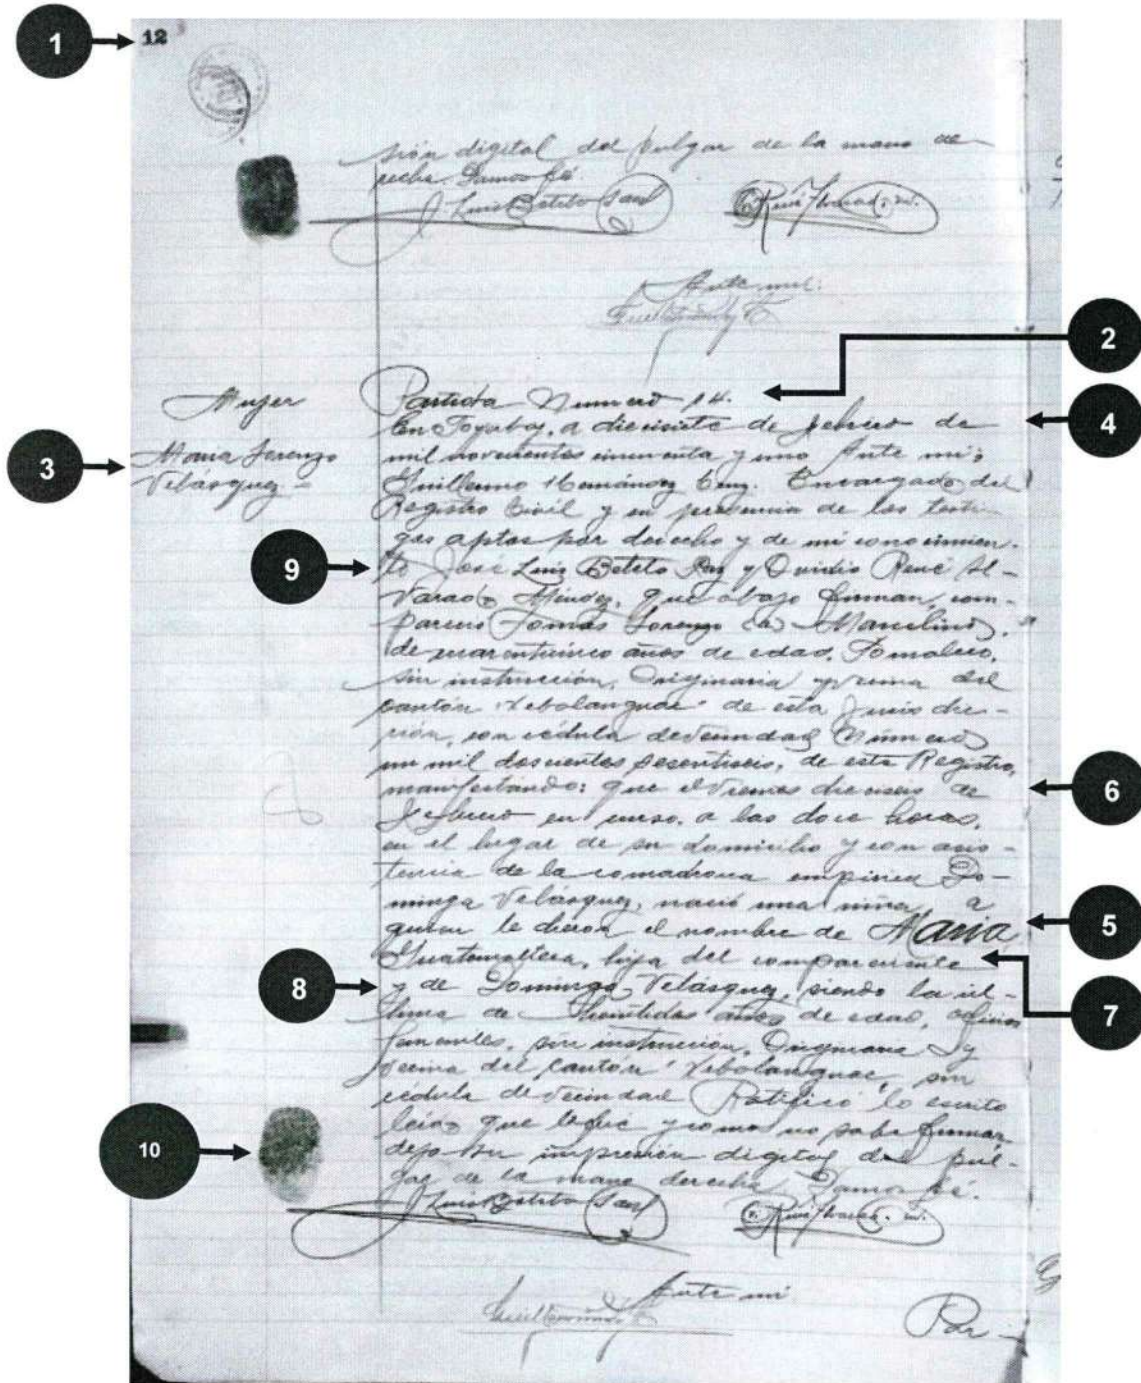 1
12
sión digital del pulgar de la mano de-
recha. Damos fé.
J. Luis Beteta
Ante mí:
2
Mujer
Partida Numero 14.
En Joyabaj, a diecisiete de febrero de
4
3
Maria Lorenzo
Velásquez =
mil novecientos cincuenta y uno Ante mi;
Guillermo Hernández Cruz. Encargado del
Registro Civil y en presencia de los testi-
gos aptos por derecho y de mi conocimien-
9
to José Luis Beteta Paz y Ovidio René Al-
varado Méndez, que abajo firman, com-
pareció Tomás Lorenzo (a) Marcelino,
de cuarenticinco años de edad, Jornalero,
sin instrucción, Originario y vecino del
cantón de esta jurisdic-
ción, con cédula de vecindad Número
un mil doscientos sesentiseis, de este Registro,
manifestando: que el viernes dieciseis de
6
febrero en curso, a las doce horas,
en el lugar de su domicilio y con asis-
tencia de la comadrona empirica Do-
minga Velásquez, nació una niña a
quien le dieron el nombre de Maria
5
Guatemalteca, hija del compareciente
7
8
y de Dominga Velásquez, siendo la úl-
tima de treintidos años de edad, oficios
femeniles, sin instrucción, Originaria y
vecina del cantón sin
cédula de vecindad Ratificó lo escrito
10
leido que le fue y como no sabe firmar
dejo su impresión digital del pul-
gar de la mano derecha Damos fé.
J. Luis Beteta
Ante mi
Par-